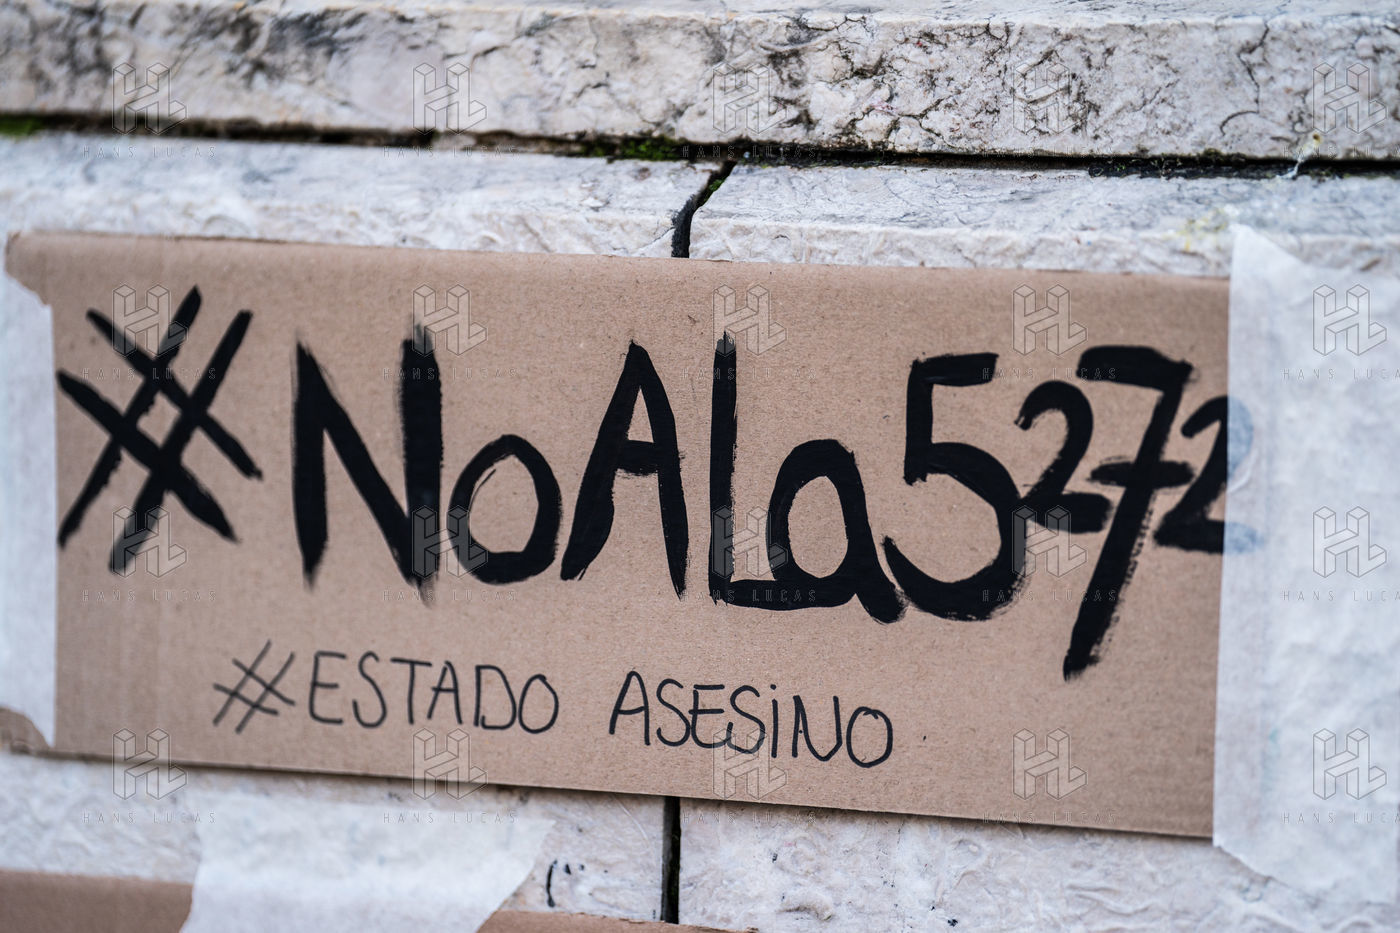 #NoALa5272
#ESTADO ASESINO
HANS LUCAS